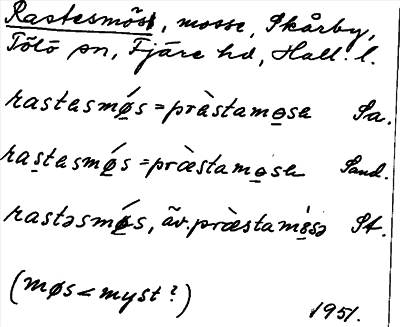 Rastesmöst, mosse, Skårby,
Tölö sn, Fjäre hd, Hall. l.
rastasmǿ̱s = præ̀stamo̱sa Sa.
ra̱stasmǿ̱s = præ̀stamo̱sa Sand.
rastəsmǿs, äv. præ̀stamo̱sə St.
(møs < myst?)
1951.